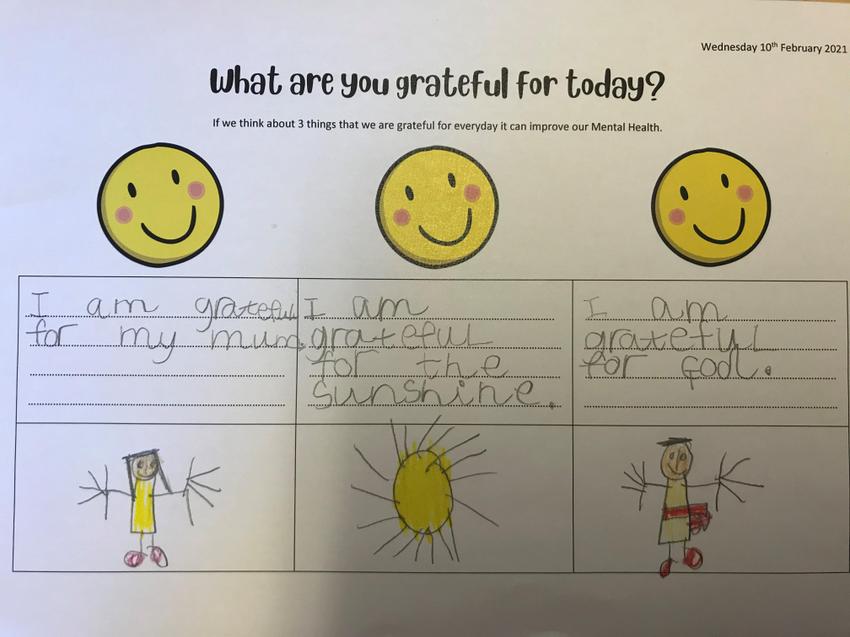 Wednesday 10th February 2021
What are you grateful for today?
If we think about 3 things that we are grateful for everyday it can improve our Mental Health.
I am grateful
for my mum.
I am
grateful
for the
sunshine.
I am
grateful
for God.